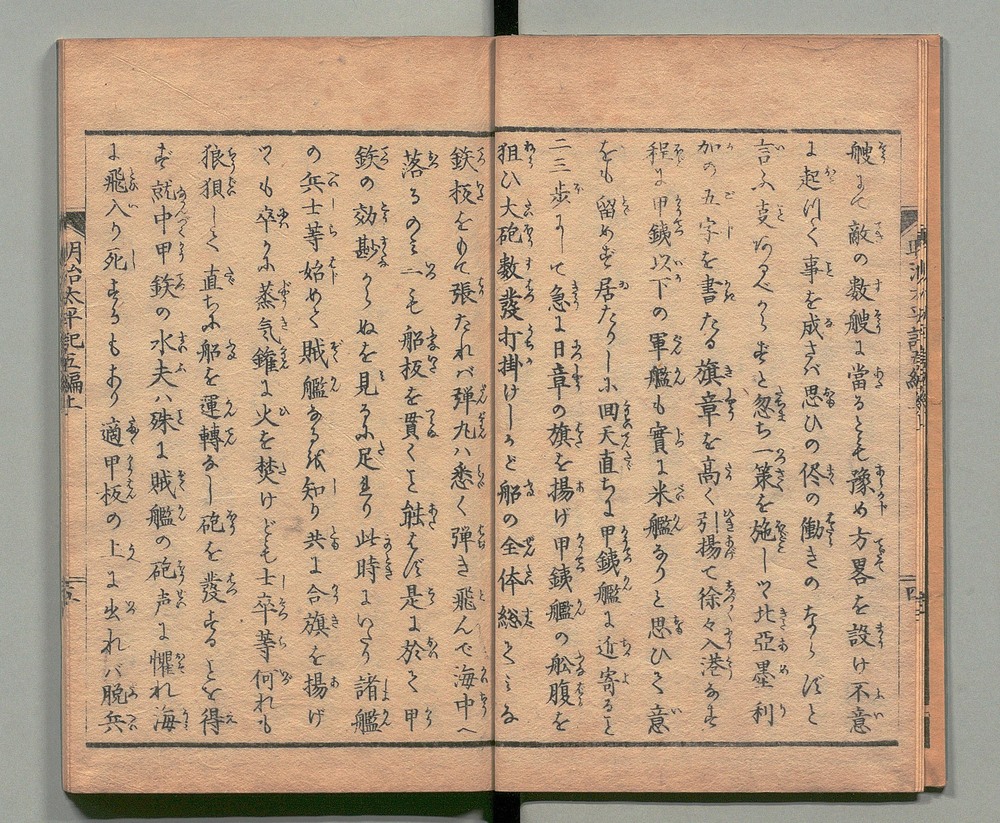 艘にて敵の数艘に當るとも豫め方畧を設け不意
に起りて事を成さバ思ひの侭の働きのならぬと
言ふ支あるべからずと忽ち一策を施しツヽ北亞墨利
加の五字を書たる旗章を高く引揚て徐々入港なす
程に甲鉄以下の軍艦も實に米艦なりと思ひて意
をも留めず居たりしに回天直ちに甲鉄艦に近寄ること
二三歩にして急に日章の旗を揚げ甲鉄艦の舩腹を
狙ひ大砲数發打掛けしかど船の全体総てミな
鉄板をもて張たれバ弾丸ハ悉く弾き飛んで海中へ
落るのミにて一も船板を貫くこと能はず是に於て甲
鉄の効尠からぬを見るに足れり此時にいたり諸艦
の兵士等始めて賊艦なるを知り共に合旗を揚げ
ツヽも卒かに蒸気鑵に火を焚けども士卒等何れも
狼狽して直ちに船を運轉なし砲を發することを得
ず就中甲鉄の水夫ハ殊に賊艦の砲声に懼れ海
に飛入り死するもあり適甲板の上に出れバ脱兵
明治太平記五編上